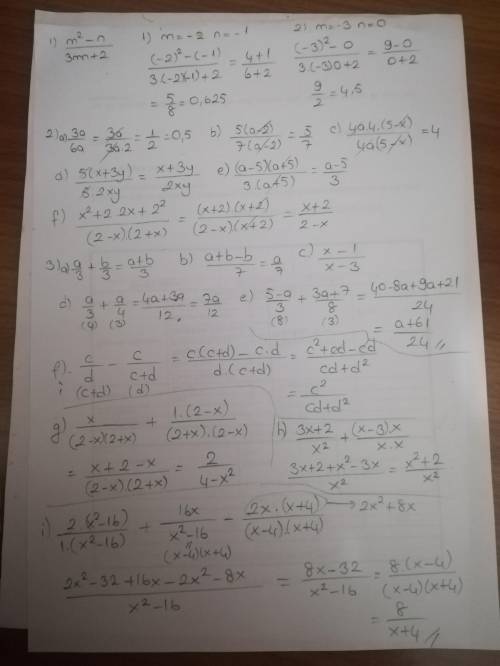 1) m²-n / 3mn+2   1) m=-2 n=-1   2) m=-3 n=0
(-2)²-(-1) / 3.(-2)(-1)+2 = 4+1 / 6+2   (-3)²-0 / 3.(-3)0+2 = 9-0 / 0+2
= 5/8 = 0,625   9/2 = 4,5
2) a) 3a/6a = 3a/3a.2 = 1/2 = 0,5   b) 5(a-2) / 7(a-2) = 5/7   c) 4a.4.(5-x) / 4a(5-x) = 4
d) 5(x+3y) / 5.2xy = x+3y / 2xy   e) (a-5)(a+5) / 3.(a+5) = a-5 / 3
f) x²+2.2x+2² / (2-x).(2+x) = (x+2).(x+2) / (2-x)(x+2) = x+2 / 2-x
3) a) a/3 + b/3 = a+b / 3   b) a+b-b / 7 = a/7   c) x-1 / x-3
d) a/3 + a/4 = 4a+3a / 12 = 7a/12   e) 5-a / 3 + 3a+7 / 8 = 40-8a+9a+21 / 24
(4) (3)   (8) (3)   = a+61 / 24
f) c/d - c / c+d = c(c+d)-c.d / d.(c+d) = c²+cd-cd / cd+d²
(c+d) (d)   = c² / cd+d²
g) x / (2-x)(2+x) + 1.(2-x) / (2+x).(2-x)   h) 3x+2 / x² + (x-3).x / x.x
= x+2-x / (2-x).(2+x) = 2 / 4-x²   3x+2+x²-3x / x² = x²+2 / x²
i) 2(x²-16) / 1.(x²-16) + 16x / x²-16 - 2x.(x+4) / (x-4).(x+4) → 2x²+8x
(x-4)(x+4)
2x²-32+16x-2x²-8x / x²-16 = 8x-32 / x²-16 = 8(x-4) / (x-4)(x+4)
= 8 / x+4